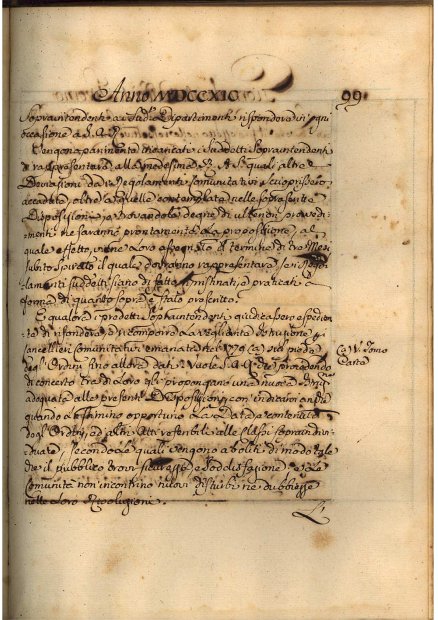 Anno MDCCXIC
99
Sopraintendenti ai Dipartimenti rispondere in ogni
occasione a S. A. R.
Vengon parimente incaricati i suddetti Sopraintendenti
di rappresentare alla medesima R. A. S. quali altre
Deviazioni dai Regolamenti Comunitativi si scoprissero
accadute, oltre a quelle contemplate nelle soprascritte
Disposizioni, e trovandole degne di ulteriori provvedi-
menti ne faranno prontamente la proposizione, al
quale effetto viene loro assegnato il termine di tre Mesi
subito spirato il quale dovranno rappresentare, se i Rego-
lamenti suddetti siano di fatto ripristinati, e praticati a
forma di quanto sopra è stato prescritto.
E qualora i predetti Sopraintendenti giudicassero espedien-
te di rifondere, e ricomporre la vegliante Istruzione ai
Cancellieri Comunitativi emanata nel 1779 (a) sul piede
degl'Ordini fino allora dati Vuole S. A. R. che procedendo
di concerto tra di loro gli propongano una nuova
adequata alle presenti Disposizioni, con indicare anche
quando lo stimino opportuno la Data, e contenuto
degl'Ordini, ed altri Atti referibili alle Classi sopraindivi-
duate, secondo le quali vengono aboliti, di modo tale
che il pubblico trovi sicurezza, e soddisfazione e le
Comunità non incontrino nuovi disturbi ne dubbiezze
nelle loro Risoluzioni.
(a) V. Tomo
Carta